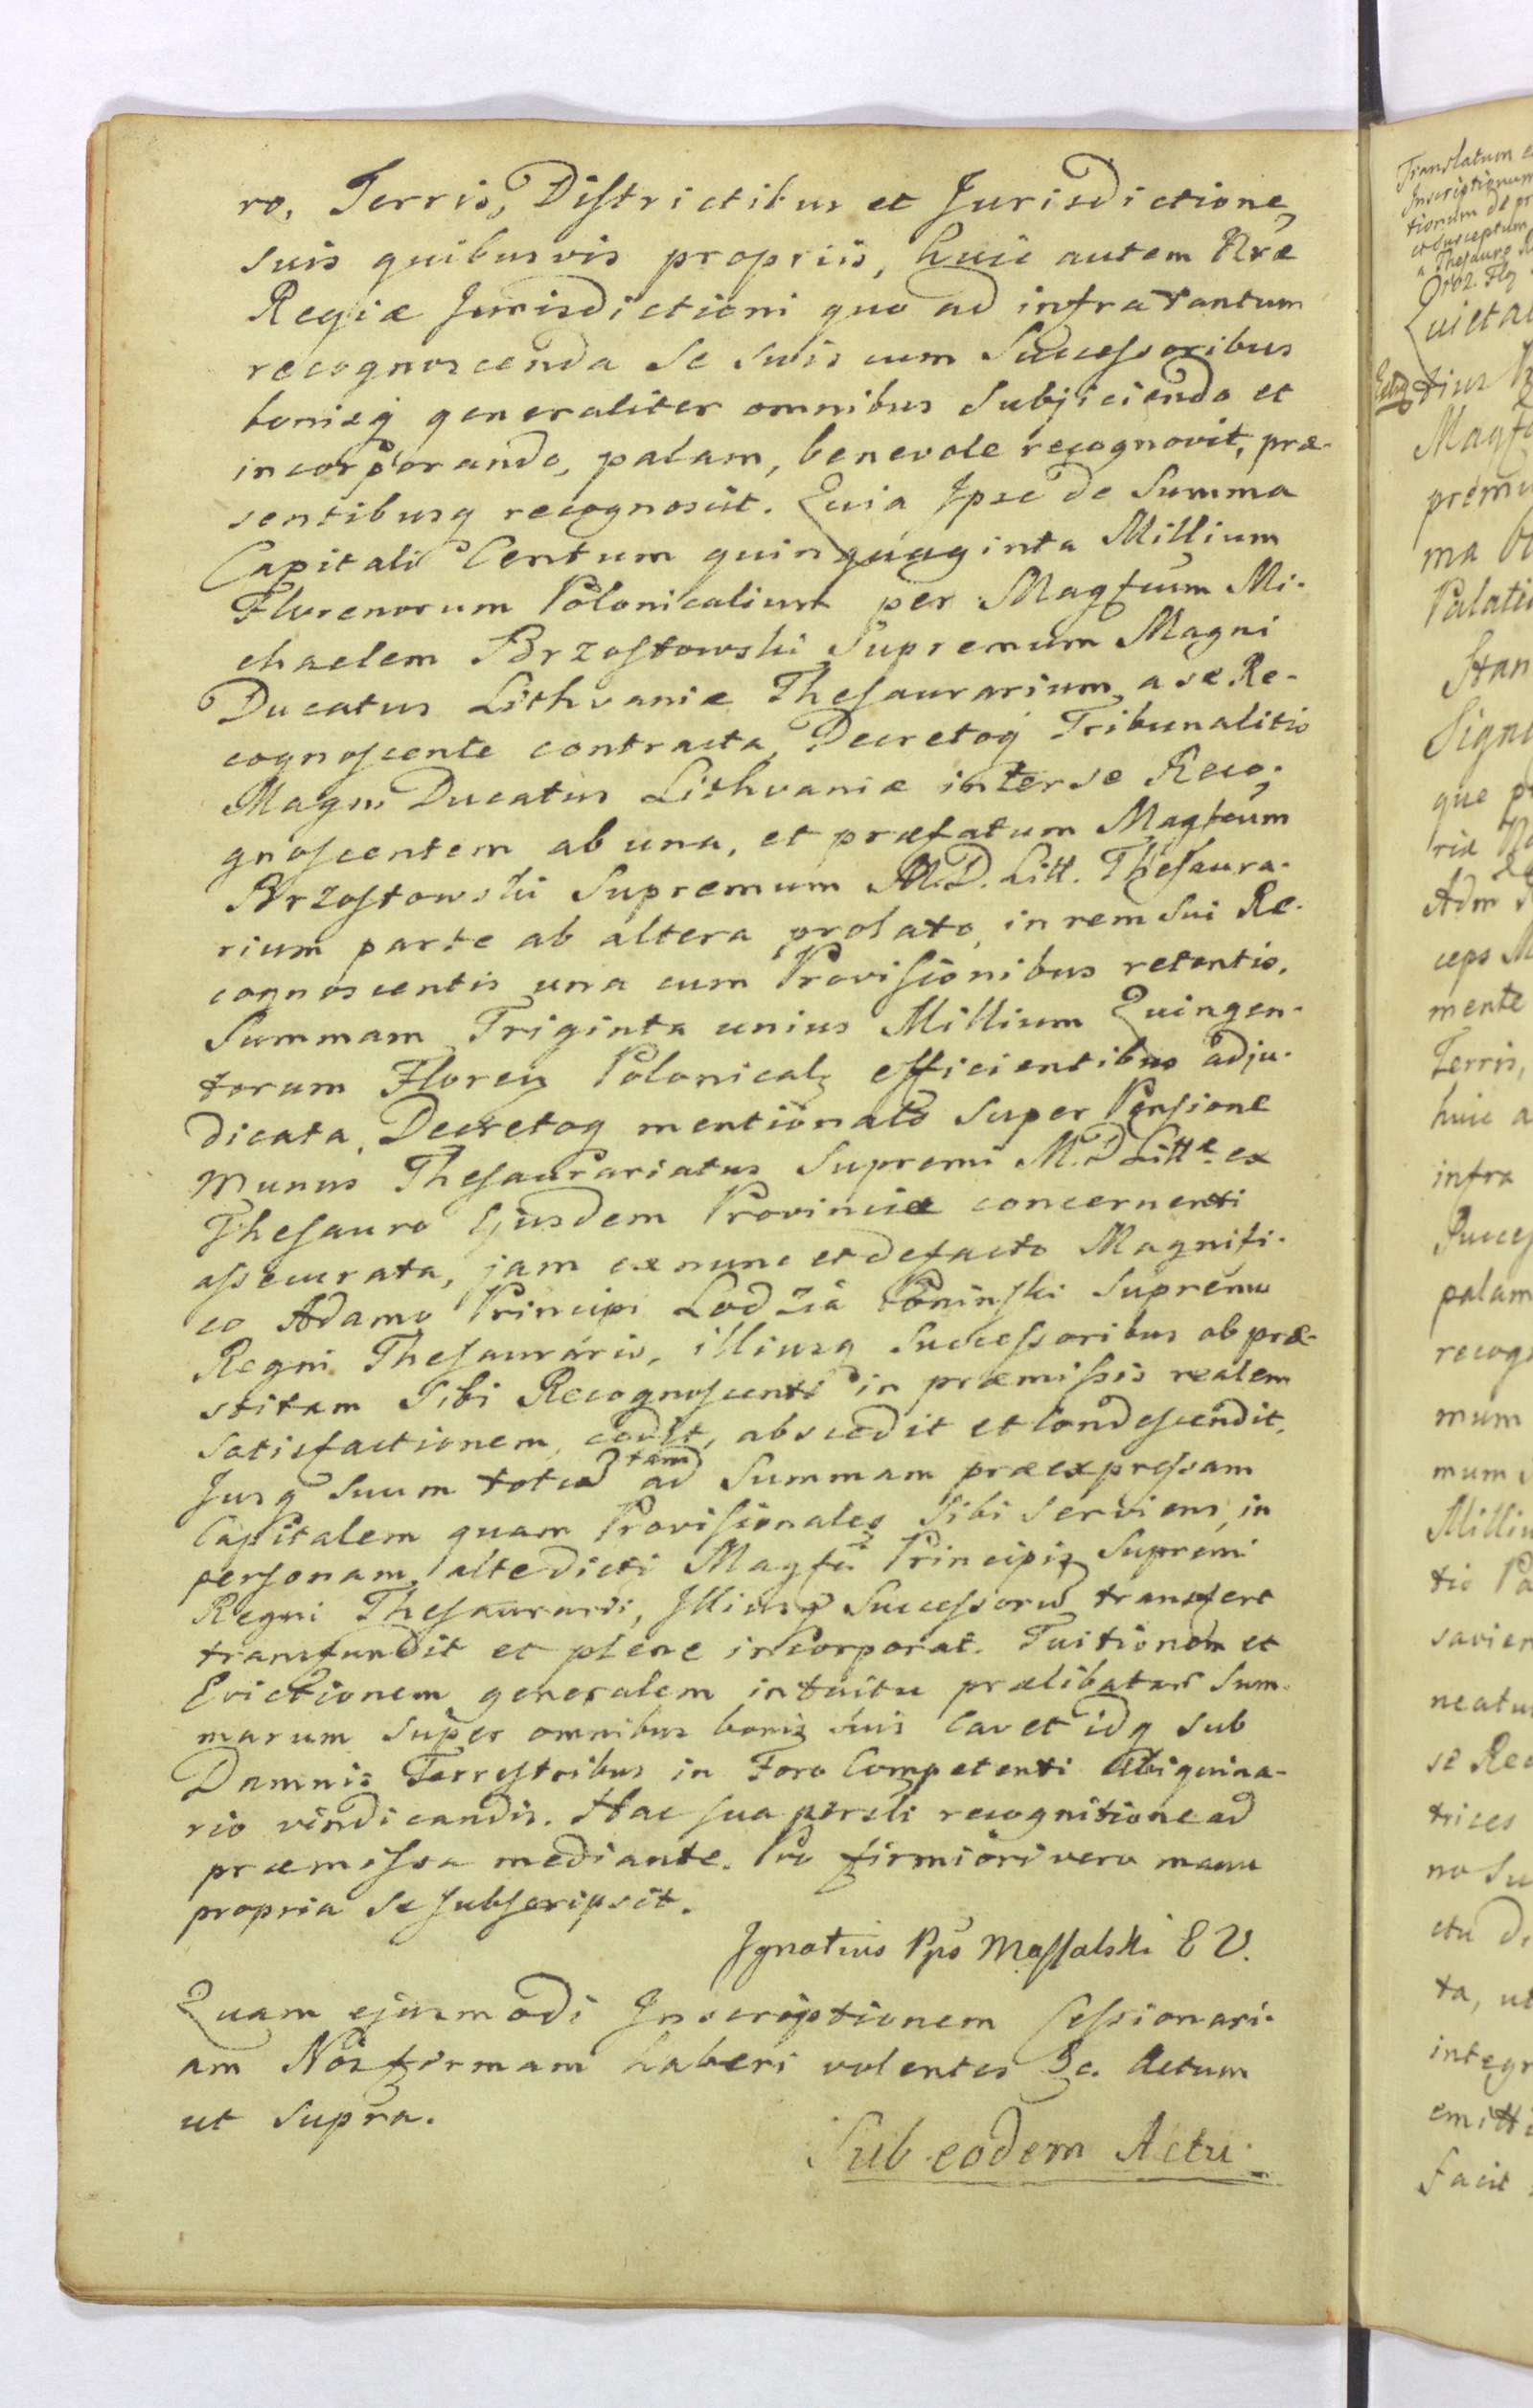 ro, Terris, Districtibus et Jurisdictione,
suis quibusvis propriis, huic autem Nræ
Regiæ Jurisdictioni quo ad infra tantum
recognoscenda se suis cum Successoribus
bonisq generaliter omnibus Subjiciendo et
incorporando, palam, benevole recognovit, præ-
sentibusq recognoscit. Quia Ipse de Summa
Capitali Centum quinquaginta Millium
Florenorum Polonicalium per Magfcum Mi-
chaelem Brzostowski Supremum Magni
Ducatus Lithvaniæ Thesaurarium a se Re-
cognoscente contracta, Decretoq Tribunalitio
Magni Ducatus Lithvaniæ inter se Reco-
gnoscentem ab una, et præfatum Magfcum
Brzostowski Supremum M.D. Litt. Thesaura-
rium parte ab altera prolato, in rem sui Re-
cognoscentis una cum Provisionibus retentis,
Summam Triginta unius Millium Quingen-
torum Floren Polonical efficientibus adju-
dicata, Decretoq mentionato super Pensione
Munus Thesaurariatus Supremi M.D Littæ ex
Thesauro Ejusdem Provinciæ concernenti
assecurata, jam ex nunc et de facto Magnifi-
co Adamo Principi Lodzia Poninski Supremo
Regni Thesaurario, illiusq Successoribus ob præ-
stitam sibi Recognoscenti in præmissis realem
satisfactionem, cedit, abscedit et condescendit,
Jusq Suum totum tam ad Summam præexpressam
Capitalem quam Provisionales sibi serviens, in
personam altedicti Magfci Principis Supremi
Regni Thesaurarii, Illiusq Successorum transfert
transfundit et plene incorporat. Tuitionem et
Evictionem generalem intuitu prælibatarum Sum-
marum super omnibus bonis suis cavet idq sub
Damnis Terrestribus in Foro Competenti Ubiquina-
rio vindicandis. Hac sua persli recognitione ad
præmissa mediante. Pro firmiori vero manu
propria se subscripsit.
Ignatius Pps Massalski E V.
Quam ejusmodi Inscriptionem Cessionari-
am Nos firmam haberi volentes &c. Actum
ut supra.
Sub eodem Actu.
Translatum
Inscriptionum
tionum de
et susceptum
a Thesauro
tius
Magf
ma
Palati
Stan
que
ceps M
mente
Terris,
huic a
infra
Succes
palam
recog
mum
mum
Milliu
neatu
se Rec
trices
no su
ta, ut
integr
emitti
facit